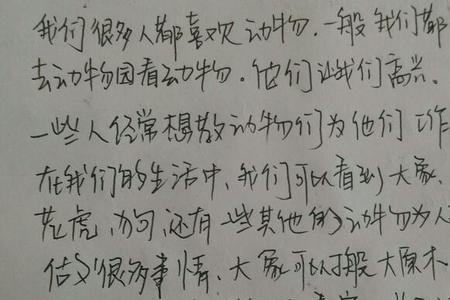 我们很多人都喜欢动物.一般我们都
去动物园看动物.他们让我们高兴.
一些人经常想教动物们为他们工作
在我们的生活中,我们可以看到大象,
老虎,狗,还有一些其他的动物为人
做很多事情,大象可以搬大原木